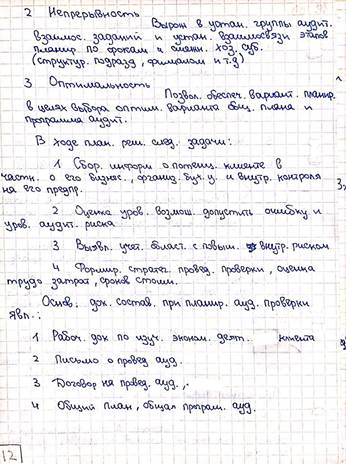 2 Непрерывность
Выраж в устан. группы аудит.
взаимос. заданий и устан. взаимосвязи этапов
планир. по срокам и смежн. хоз. суб.
(структур. подразд, филиалам и т.д)
3 Оптимальность
Позвол. обеспеч. вариант. планир.
в целях выбора оптим. варианта общ. плана и
программа аудит.
В ходе план. реш. след. задачи:
1 Сбор. информ о потенц. клиенте в
частн. о его бизнес., организ. бух. у. и внутр. контроля
на его предпр.
2 Оценка уров. возмож. допустить ошибку и
уров. аудит. риска
3 Выявл. учет. област. с повыш. внутр. риском
4 Формир. стратег. провед. проверки, оценка
трудо затрат, сроков стоим.
Основ. док. состав. при планир. ауд. проверки
явл.:
1 Рабоч. док по изуч. эконом. деят. клиента
2 Письмо о провед ауд.
3 Договор на провед. ауд.
4 Общий план, общая програм. ауд.
12